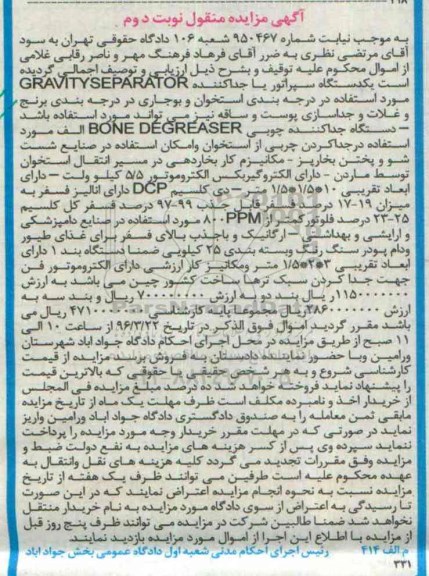 آگهی مزایده منقول نوبت دوم
به موجب نیابت شماره ۹۵۰۴۶۷ شعبه ۱۰۶ دادگاه حقوقی تهران به سود
آقای مرتضی نظری به ضرر آقای فرهاد فرهنگ مهر و ناصر رقابی غلامی
از اموال محکوم علیه توقیف و بشرح ذیل ارزیابی و توصیف اجمالی گردیده
است یکدستگاه سپراتور یا جداکننده GRAVITYSEPARATOR
مورد استفاده در درجه بندی استخوان و بوجاری در درجه بندی برنج
و غلات و جداسازی پوست و ساقه نیز می تواند مورد استفاده باشد
– دستگاه جداکننده چوبی BONE DEGREASER الف مورد
استفاده درجداکردن چربی از استخوان وامکان استفاده در صنایع شست
شو و پختن بخارپز - مکانیزم کار بخاردهی در مسیر انتقال استخوان
توسط ماردن - دارای الکتروگیربکس الکتروموتور ۵/۵ کیلو ولت – دارای
ابعاد تقریبی ۱۰*۱/۵*۱/۵ متر – دی کلسیم DCP دارای آنالیز فسفر به
میزان ۱۹-۱۷ درصد فسفر قابل جذب ۹۹-۹۷ درصد فسفر کل کلسیم
۲۵-۲۳ درصد فلوئور کمتر از ۸۰۰PPM مورد استفاده در صنایع دامپزشکی
و آرایشی و بهداشتی – ارگانیک و باجذب بالای فسفر برای غذای طیور
ودام پودر سنگ رنگ وبسته بندی ۲۵ کیلویی ضمنا دستگاه بند ۱ دارای
ابعاد تقریبی ۳*۲*۱/۵ متر ومکانیز کار ارزشی دارای الکتروموتور فن
جهت جدا کردن سبک ترها ساخت کشور چین می باشد به ارزش
ریال بند دو به ارزش
ریال و بند سه به
ارزش
ریال مجموعا پایه کارشناسی
ریال می
باشد مقرر گردید اموال فوق الذکر در تاریخ ۹۶/۳/۲۲ از ساعت ۱۰ الی
۱۱ صبح از طریق مزایده در محل اجرای احکام دادگاه جواد آباد شهرستان
ورامین وبا حضور نماینده دادستان به فروش برسد مزایده از قیمت
کارشناسی شروع و به هر شخص حقیقی یا حقوقی که بالاترین قیمت
را پیشنهاد نماید فروخته خواهد شد ده درصد مبلغ مزایده فی المجلس
از خریدار اخذ و نامبرده مکلف است ظرف مهلت یک ماه از تاریخ مزایده
مابقی ثمن معامله را به صندوق دادگستری دادگاه جواد آباد ورامین واریز
نماید در صورتی که در مهلت مقرر خریدار وجه مورد مزایده را پرداخت
ننماید سپرده وی پس از کسر هزینه های مزایده به نفع دولت ضبط و
مزایده وفق مقررات تجدید می گردد کلیه هزینه های نقل وانتقال به
عهده محکوم علیه است طرفین می توانند ظرف یک هفته از تاریخ
مزایده نسبت به نحوه انجام مزایده اعتراض نمایند که در این صورت
تا رسیدگی به اعتراض از سوی دادگاه مورد مزایده به نام خریدار منتقل
نخواهد شد ضمنا طالبین شرکت در مزایده می توانند ظرف پنج روز قبل
از مزایده با اطلاع این اجرا از اموال مورد مزایده بازدید نمایند
م.الف ۴۱۴ رئیس اجرای احکام مدنی شعبه اول دادگاه عمومی بخش جواد آباد
۳۳۱